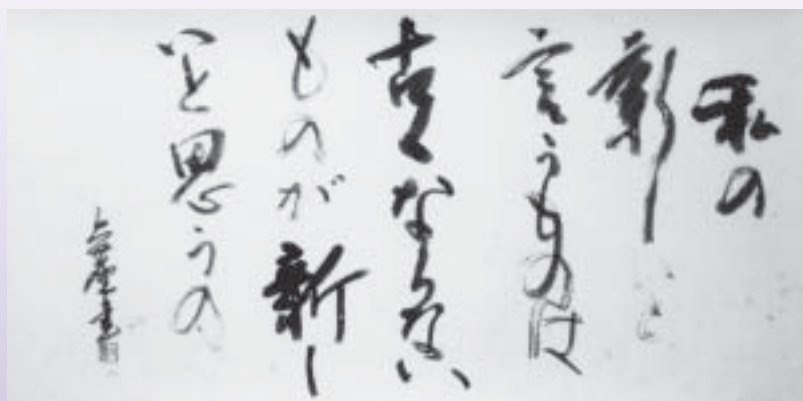 私の
新しいと
言うものは
古くならない
ものが新し
いと思うの